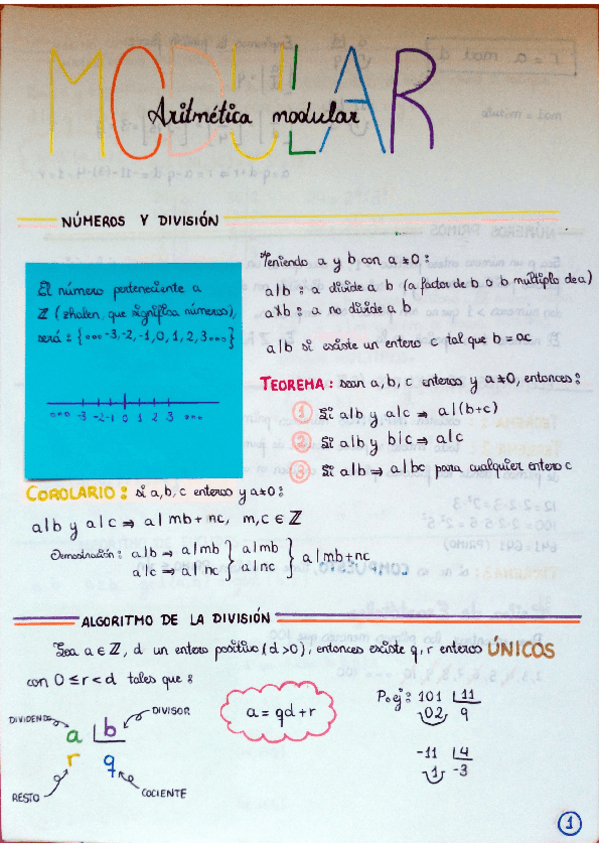 MODULAR
Aritmética modular
NÚMEROS Y DIVISIÓN
El número perteneciente a
ℤ (zhalen, que significa números),
será: {∘∘∘ -3,-2,-1,0,1,2,3∘∘∘}
∘∘∘ -3 -2 -1 0 1 2 3 ∘∘∘
Teniendo a y b con a≠0:
a|b : a divide a b (a factor de b o b multiplo de a)
a∤b : a no divide a b
a|b si existe un entero c tal que b=ac
TEOREMA: sean a,b,c enteros y a≠0, entonces:
1 Si a|b y a|c ⇒ a|(b+c)
2 Si a|b y b|c ⇒ a|c
3 Si a|b ⇒ a|bc para cualquier entero c
COROLARIO: si a,b,c enteros y a≠0:
a|b y a|c ⇒ a|mb+nc, m,c ∈ ℤ
Demostración: a|b ⇒ a|mb } a|mb } a|mb+nc
a|c ⇒ a|nc } a|nc }
ALGORITMO DE LA DIVISIÓN
Sea a∈ℤ, d un entero positivo (d>0), entonces existe q,r enteros ÚNICOS
con 0≤r<d tales que:
DIVIDENDO a b DIVISOR
RESTO r q COCIENTE
a=qd+r
P.ej: 101 11
02 9
-11 4
1 -3
1